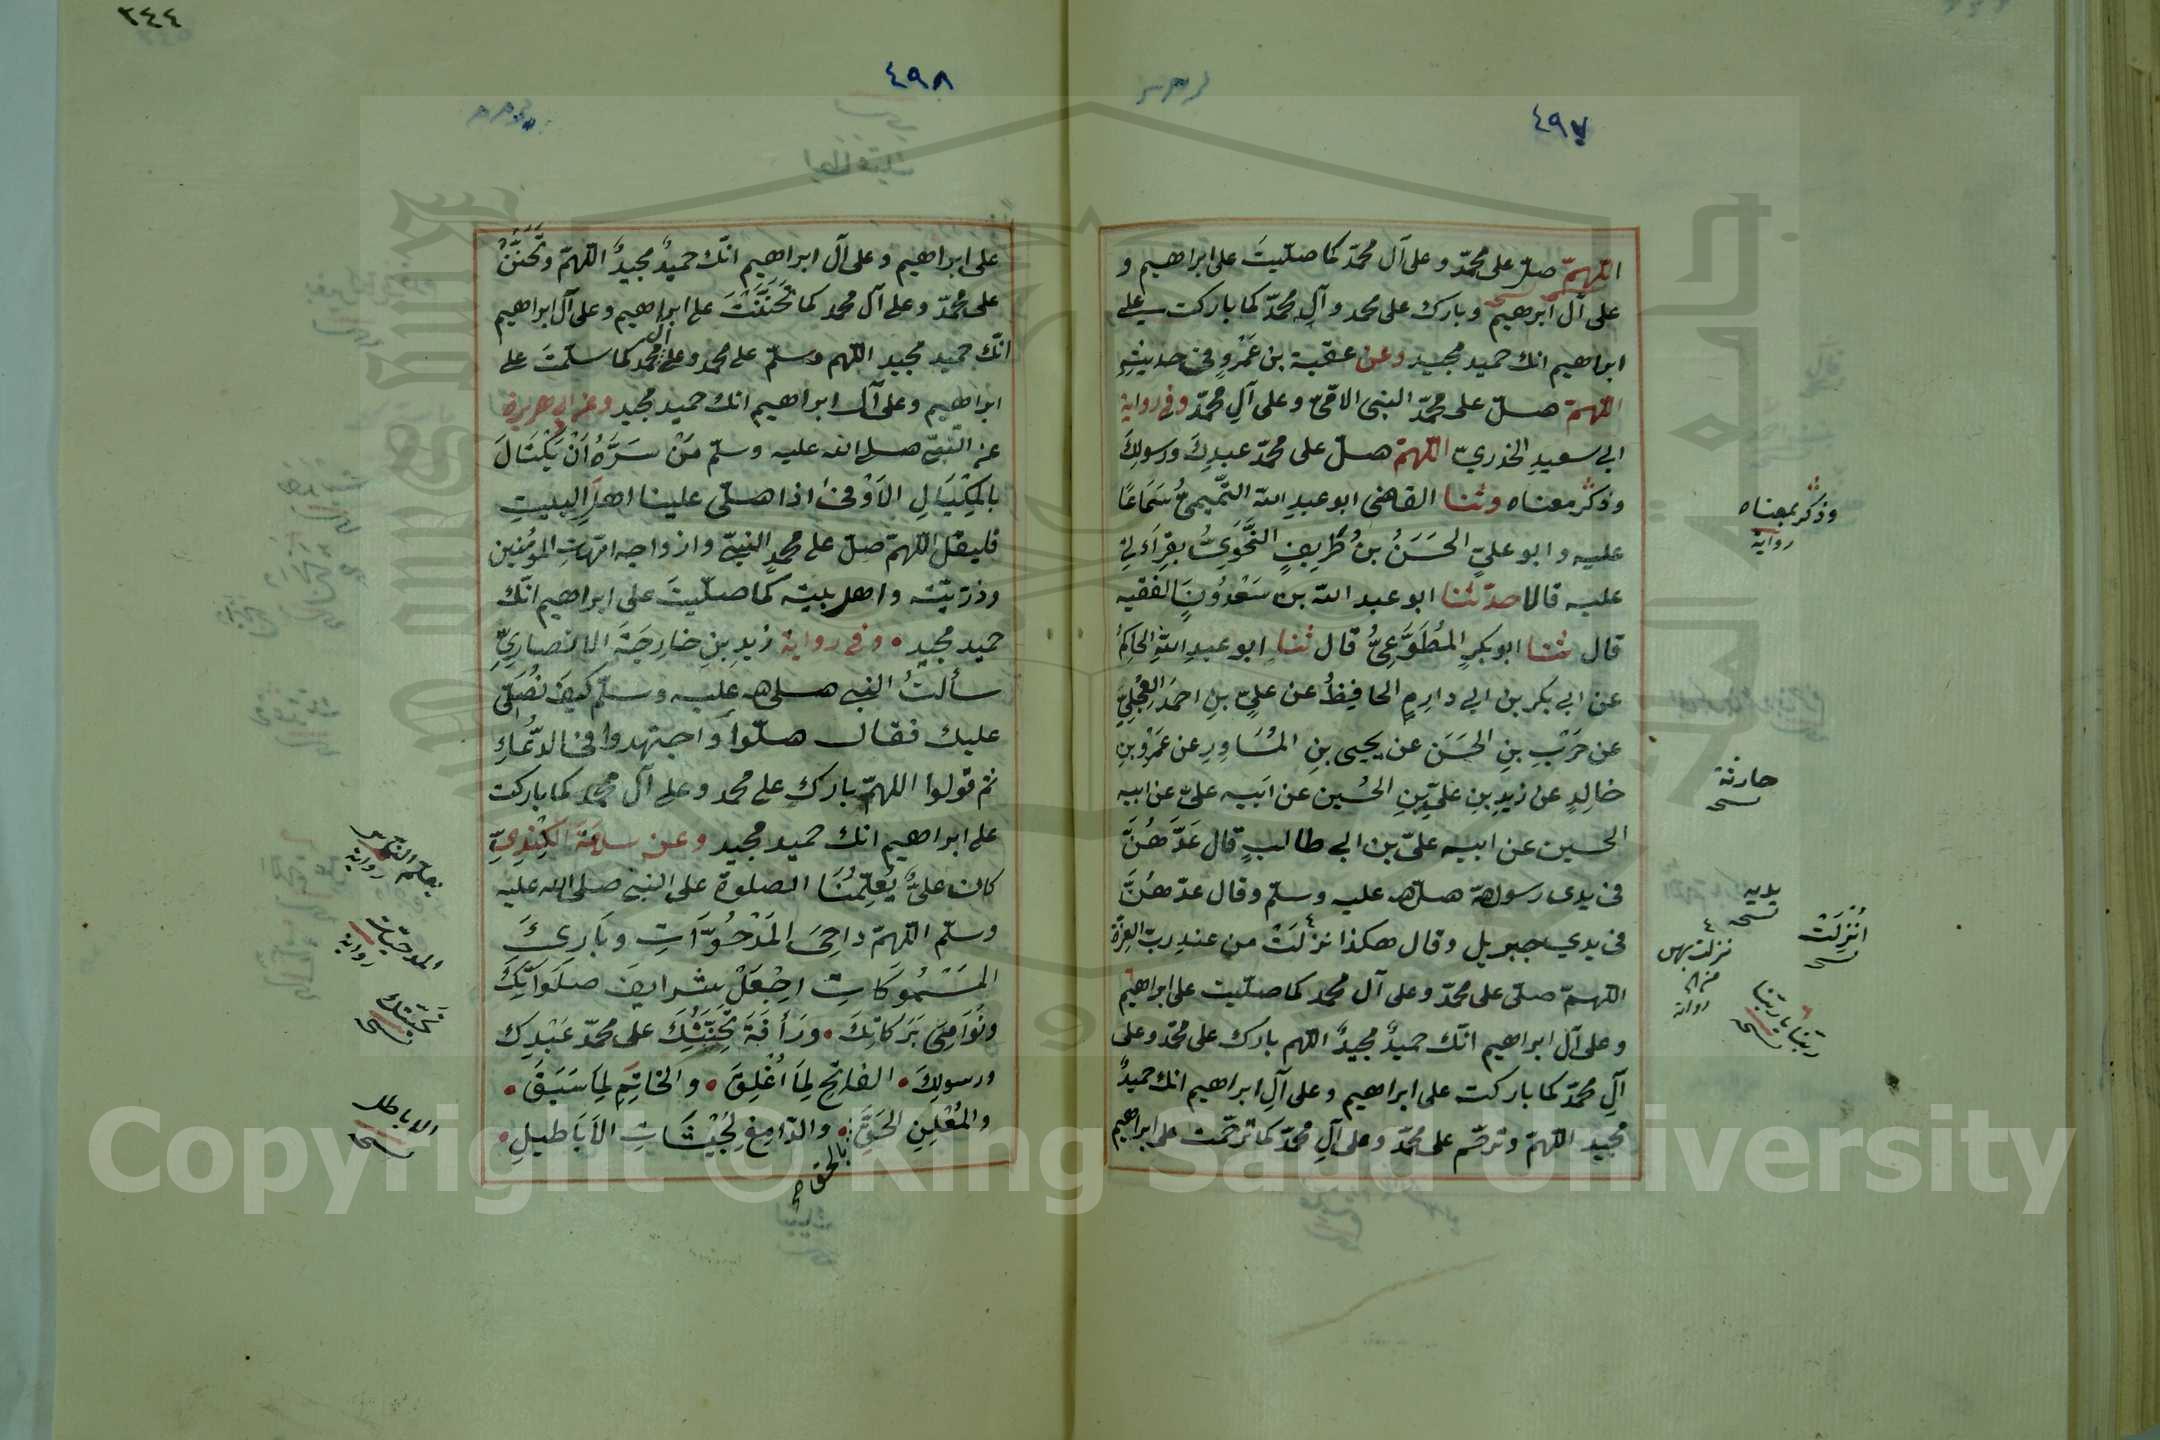 ٤٩٧
اللهمّ صلّ على محمّد وعلى آل محمّد كما صلّيتَ على ابراهيم و
على آل ابرهيم وبارك على محمد وآلِ محمّد كما باركت على
ابراهيم انك حميد مجيد وعن عقبة بن عَمْرٍو في حديثهِ
اللهمّ صلّ على محمّد النبي الامّيّ وعلى آلِ محمّد وفي رواية
ابي سعيدِ الخدريّ اللهمّ صلّ على محمّد عبدِكَ ورسولِكَ
وذكر معناه وثنا القاضي ابو عبدِ الله التّميميُّ سَمَاعًا
عليه وابو عليٍّ الحَسَنُ بنُ طَرِيفٍ النَّحْوِيُّ بقِرَاءَتي
عليه قالا حدّثنا ابو عبد الله بن سَعْدُونَ الفقيه
قال ثنا ابو بكرٍ المُطَوَّعِيُّ قال ثنا ابو عبدِ اللهِ الحاكمُ
عن ابي بكر بن ابي دارِمٍ الحافِظُ عن عليّ بنِ احمدَ العِجْلِيِّ
عن حَرْبِ بنِ الحَسَن عن يحيى بنِ المُسَاوِرِ عن عَمْرِو بنِ
خالِدٍ عن زيدِ بنِ عليّ بنِ الحُسين عن اَبيه عليّ عن ابيه
الحسين عن ابيه عليّ بن ابي طالبٍ قال عَدَّهُنَّ
في يدي رسول الله صلى الله عليه وسلّم وقال عدّهنَّ
في يدي جبريل وقال هكذا نزلَتْ من عندِ ربّ العِزّة
اللهمّ صلّى على محمّد وعلى آل محمد كما صلّيت على ابراهيم
وعلى آل ابراهيم انّك حميدٌ مجيدٌ اللهم بارك على محمّد وعلى
آلِ محمّد كما باركت على ابراهيم وعلى آلِ ابراهيم انك حميدٌ
مجيد اللهمّ وترحّم على محمّد وعلى آلِ محمّد كما ترحّمتَ على ابراهيم
وذكر بمعناه
رواية
حارثة
نسخه
يديه
نسخه
اُنْزِلَتْ
نسخه
نزلت بهن
رواية
ربّنا يا ربّنا
نسخه
٣٤٤
٤٩٨
على ابراهيم وعلى آل ابراهيم انّك حميدٌ مجيدٌ اللهمّ وتَحَنَّنْ
على محمّد وعلى آل محمد كما تَحَنَّنْتَ على ابراهيم وعلى آل ابراهيم
انّك حميد مجيد اللهم وسلّم على محمد وعلى آل محمّد كما سلّمتَ على
ابراهيم وعلى آل ابراهيم انك حميد مجيد وعن ابي هريرة
عن النّبيّ صلى الله عليه وسلّم مَنْ سَرَّهُ اَنْ يَكْتَالَ
بالمِكْيَالِ الاَوْفى اذا صلّى علينا اهلَ البيتِ
فليقل اللهمّ صلّ على محمدٍ النبيّ وازواجه امّهاتِ المؤمنين
وذرّيّته واهل بيته كما صلّيتَ على ابراهيم انّك
حميد مجيد وفي رواية زيدِ بنِ خارِجَةَ الانصاريِّ
سألتُ النبي صلى الله عليه وسلّم كيفَ نُصَلّي
عليك فقال صلّوا واجتهدوا في الدُّعاءِ
ثم قولوا اللهمّ بارك على محمد وعلى آل محمد كما باركت
على ابراهيم انك حميد مجيد وعن سلامة الكِنْدِيّ
كان عليٌّ يُعَلِّمُنَا الصلوة على النبي صلى الله عليه
وسلّم اللهمّ داحِيَ المَدْحُوَّاتِ وبَارِئَ
المَسْمُوكَاتِ اِجْعَلْ شرايفَ صلَوَاتِكَ
ونَوَامِيَ بَرَكاتِكَ ورَأفَةَ تَحَنُّنِكَ على محمّد عَبْدِك
ورسولِكَ الفاتِحِ لِمَا اُغْلِقَ والخاتِمِ لِمَا سَبَقَ
والمُعْلِنِ الحَقَّ والدّامِغِ لِجَيْشَاتِ الاَبَاطيلِ
بالحق
رواية
المدحيّات
رواية
نسخه
الاباطل
نسخه
Copyright © King Saud University